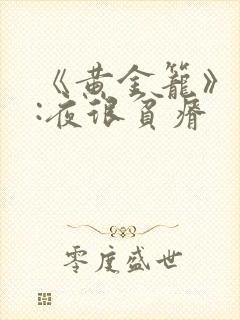 《黄金笼》
:夜很贫瘠
零度盛世